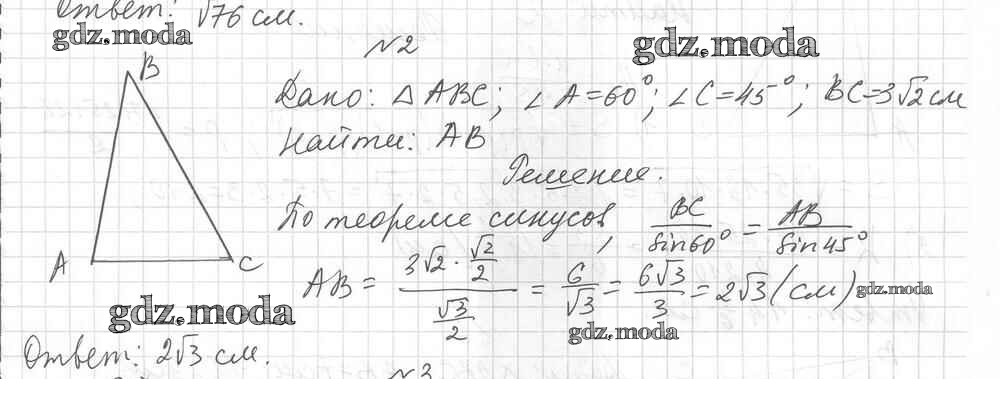 Ответ: √76 см.
gdz.moda
gdz.moda
№2
B
Дано: △ ABC; ∠A=60°; ∠C=45°; BC=3√2 см
Найти: AB
Решение.
По теореме синусов, BC/sin60° = AB/sin45°
A
C
AB = (3√2 · √2/2)/(√3/2) = 6/√3 = 6√3/3 = 2√3 (см)
gdz.moda
gdz.moda
gdz.moda
Ответ: 2√3 см.
№3